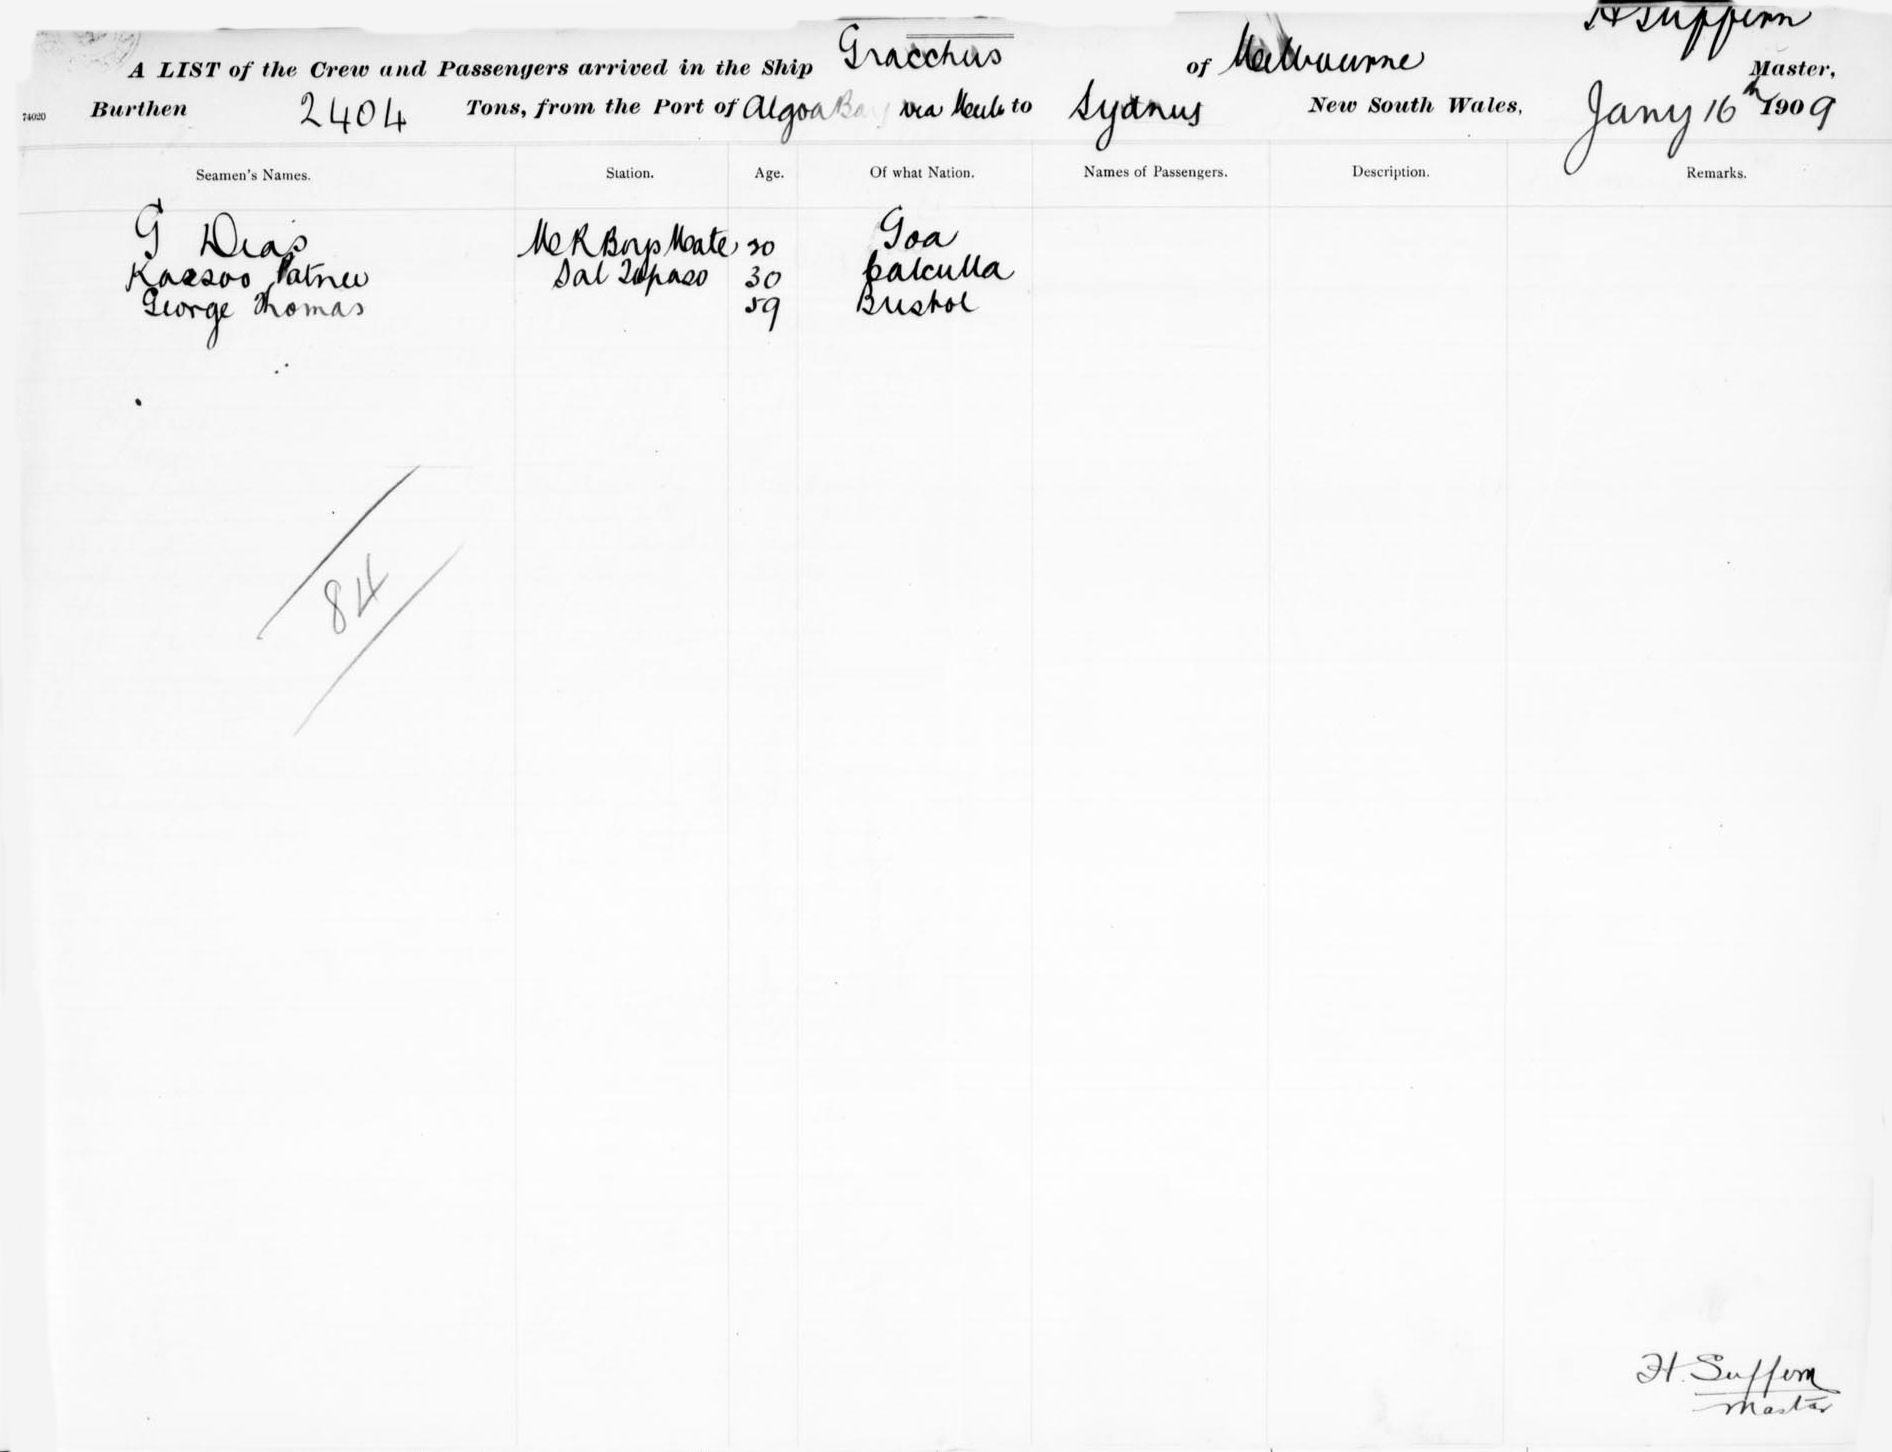 H Suffern
A LIST of the Crew and Passengers arrived in the Ship Gracchus of Melbourne Master,
74020 Burthen 2404 Tons, from the Port of Algoa Bay via Melb to Sydney New South Wales, Jany 16th 1909
Seamen's Names. Station. Age. Of what Nation. Names of Passengers. Description. Remarks.
G Dias Mate Goa
Kassoo Patnee 30 Calcutta
George Thomas 59 Bristol
84
H. Suffern
Master